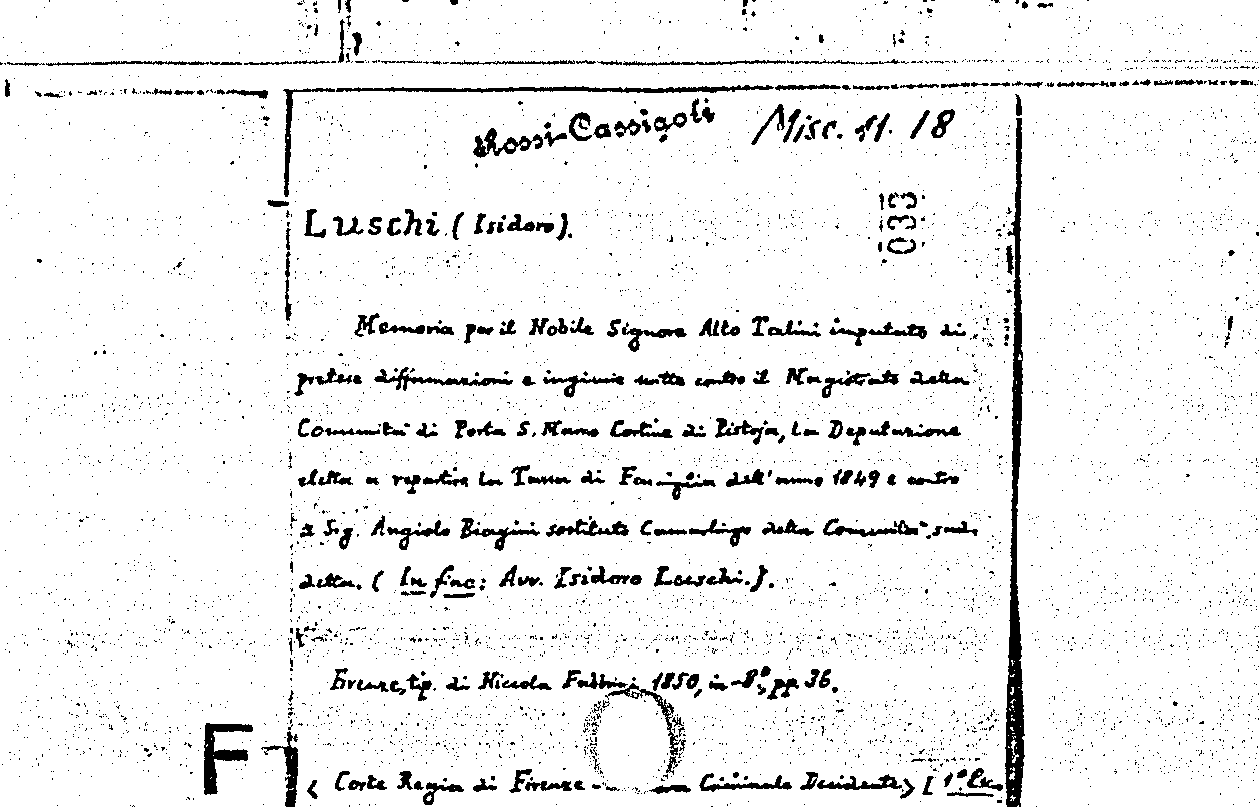 Rossi-Cassigoli Misc. 11. 18
033
Luschi (Isidoro).
Memoria per il Nobile Signore Alto Talini imputato di
pretese diffamazioni e ingiurie scritte contro il Magistrato della
Comunità di Porta S. Marco Cortine di Pistoja, la Deputazione
eletta a repartire la Tassa di Famiglia dell'anno 1849 e contro
il Sig. Angiolo Biagini sostituto Camarlingo della Comunità sud-
detta. (In fine: Avv. Isidoro Luschi.).
Firenze, tip. di Niccola Fabbrini, 1850, in-8°, pp 36.
F
< Corte Regia di Firenze - Criminale Decidente> [1°